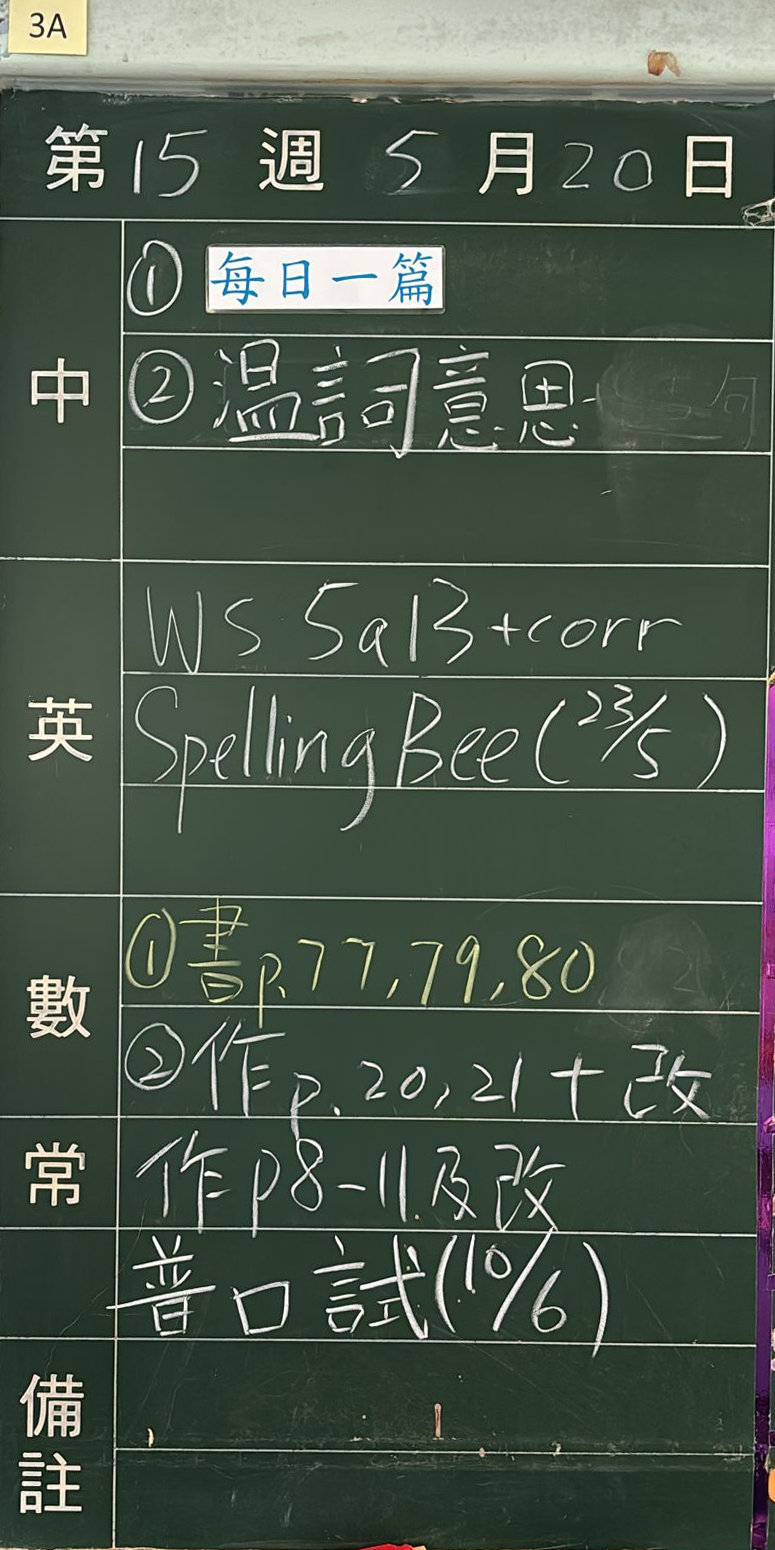 3A
第15週 5月20日
中
① 每日一篇
② 温詞意思
英
WS 5a13+corr
Spelling Bee (23/5)
數
①書p.77,79,80
②作p.20,21+改
常
作p8-11及改
普口試(10/6)
備註